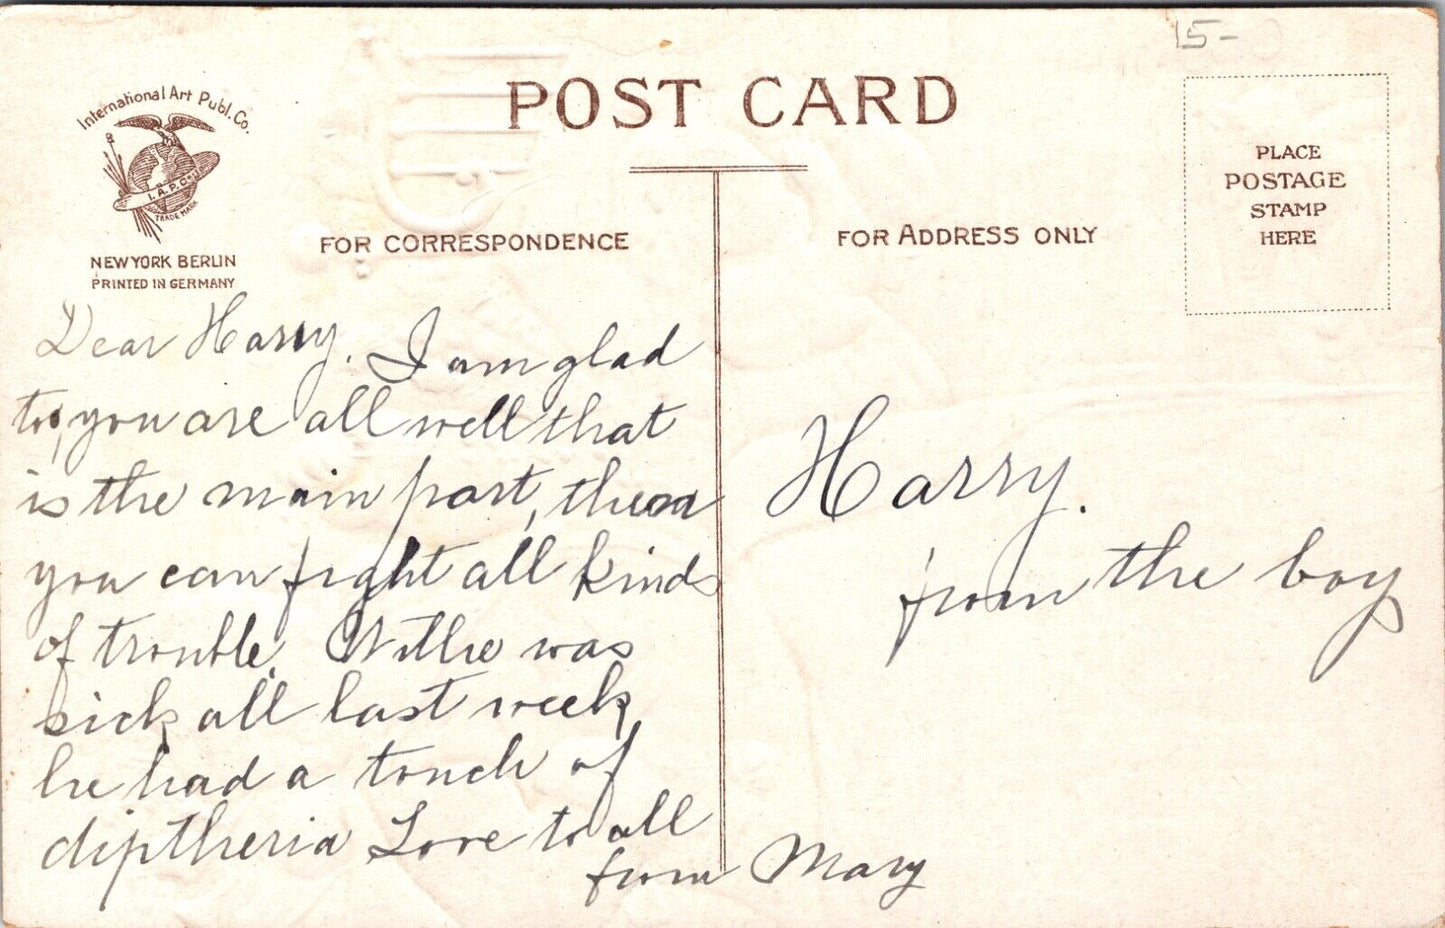 15-
International Art Publ. Co.
I. A. P. Co.
TRADE MARK
NEW YORK BERLIN
PRINTED IN GERMANY
POST CARD
FOR CORRESPONDENCE
FOR ADDRESS ONLY
PLACE
POSTAGE
STAMP
HERE
Dear Harry. I am glad
to, you are all well that
is the main part, then
you can fight all kinds
of trouble. Willie was
sick all last week,
he had a touch of
diptheria Love to all
from Mary
Harry.
from the boy